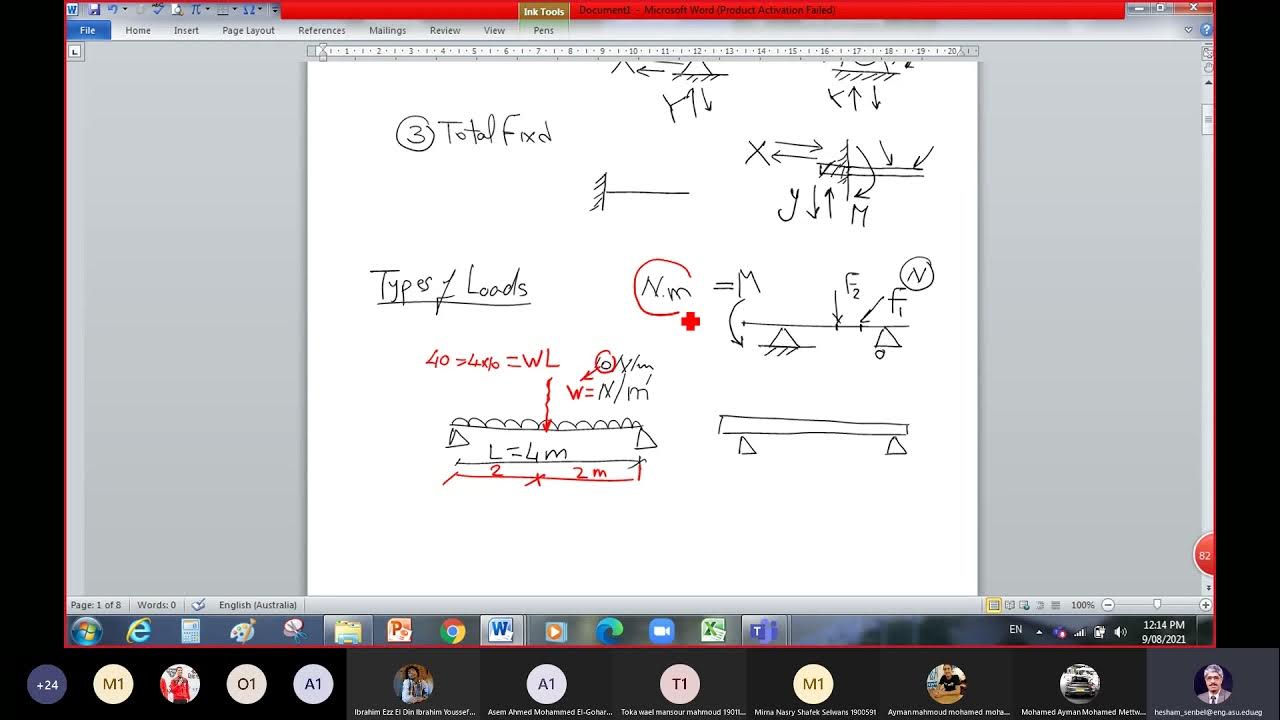 Ink Tools
Document1 - Microsoft Word (Product Activation Failed)
File Home Insert Page Layout References Mailings Review View Pens
1 2 3 4 5 6 7 8 9 10 11 12 13 14 15 16 17 18 19 20
X
Y Y
③ Total Fixd
X
y M
Types of Loads
N.m = M
F2 F1 N
40 = 4x10 = WL
10 N/m
W = N/m
L = 4m
2 2 m
82
Page: 1 of 8 Words: 0 English (Australia) 100%
EN 12:14 PM
9/08/2021
+24 M1 O1 A1 A1 T1 M1
Ibrahim Ezz El Din Ibrahim Youssef... Asem Ahmed Mohammed El-Gohar... Toka wael mansour mahmoud 19011... Mirna Nasry Shafek Selwans 1900591 Ayman mahmoud mohamed moha... Mohamed Ayman Mohamed Mettw... hesham_senbel@eng.asu.edu.eg